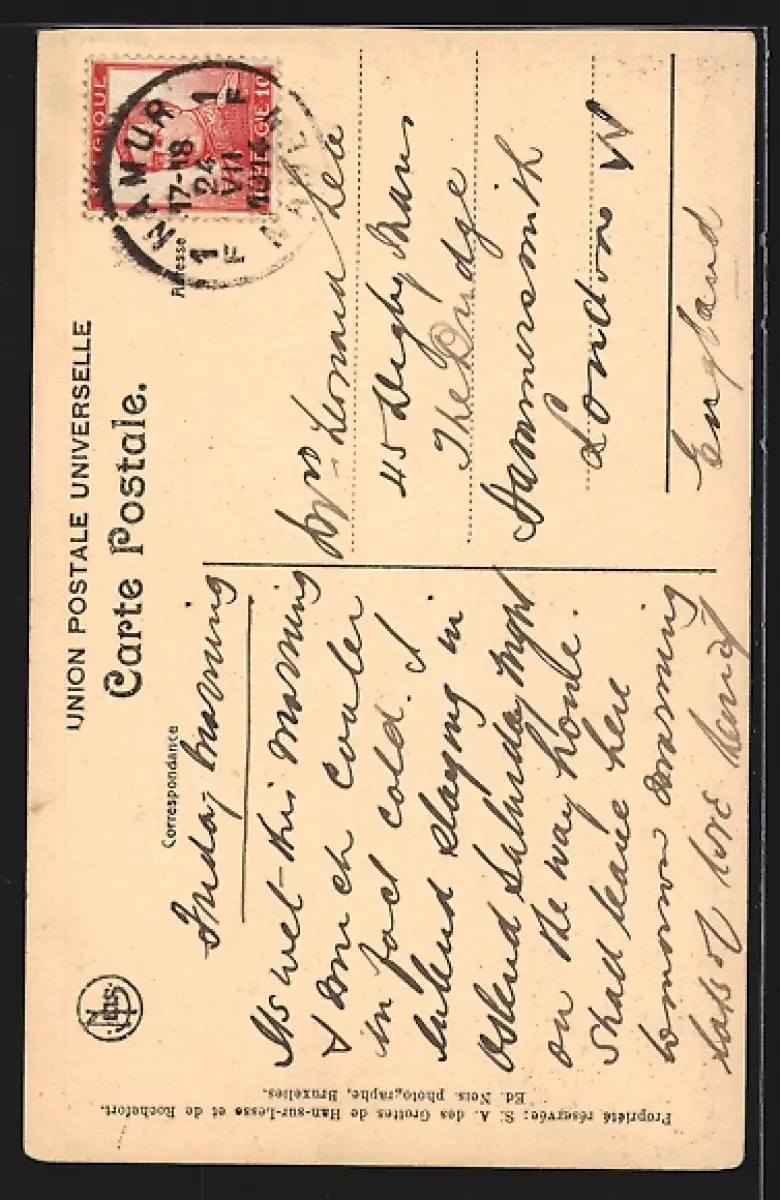 UNION POSTALE UNIVERSELLE
Carte Postale.
Correspondance
Adresse
BELGIQUE BELGIE 10
NAMUR
17-18
24
VII
1914
1 F
1 F
NAMEN
Friday morning
Its wet this morning
& much cooler
in fact cold. I
intend staying in
Ostend Saturday night
on the way home.
Shall leave here
tomorrow morning
lots of love
Mrs Leonard Lee
45 Digby Mans
The Bridge
Hammersmith
London W
England
Nels
Propriété réservée: S. A. des Grottes de Han-sur-Lesse et de Rochefort.
Ed. Nels. photographe, Bruxelles.